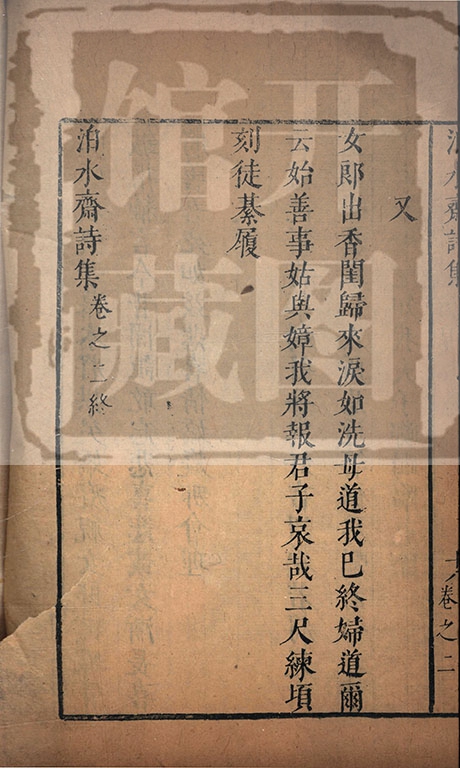 泊水齋詩集
卷之二
十八
又
女郎出香閨歸來淚如洗母道我已終婦道爾
云始善事姑與嫜我將報君子哀哉三尺練頃
刻徒綦履
泊水齋詩集卷之二終
開圖
館藏